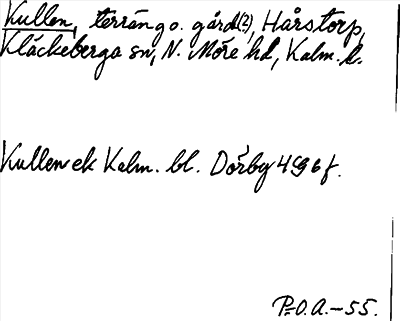 Kullen, terräng o. gård(2), Hårstorp,
Kläckeberga sn, N. Möre hd, Kalm. l.
Kullen ek Kalm. bl. Dörby 4 g 6 f.
P-O.A.-55.